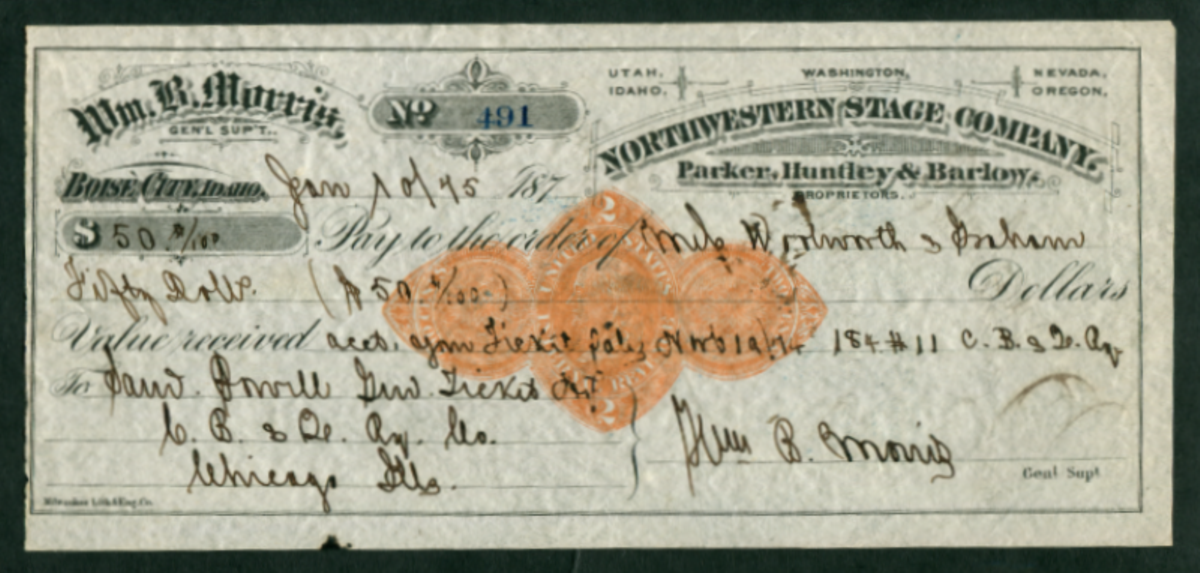 Wm. B. Morris,
GEN'L SUP'T.
No 491
UTAH, WASHINGTON, NEVADA,
IDAHO. OREGON,
NORTHWESTERN STAGE COMPANY,
Parker, Huntley & Barlow,
PROPRIETORS.
BOISÉ CITY, IDAHO, Jan 10/75 187
$ 50 #/100 Pay to the order of Woolworth & Graham
Fifty Dolls. ($50 #/100) Dollars
Value received acct. Ticket 184 #11 C. B. & Q. Ry
To Saml. Powell Genl. Ticket Agt
C. B. & Q. Ry. Co.
Chicago Ills.
Wm B. Morris
Genl Supt
Milwaukee Lith & Eng. Co.
2
2